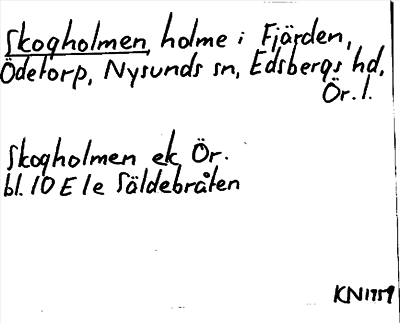 Skogholmen, holme i Fjärden,
Ödetorp, Nysunds sn, Edsbergs hd,
Ör. l.
Skogholmen ek Ör.
bl. 10 E 1e Säldebråten
KN1959